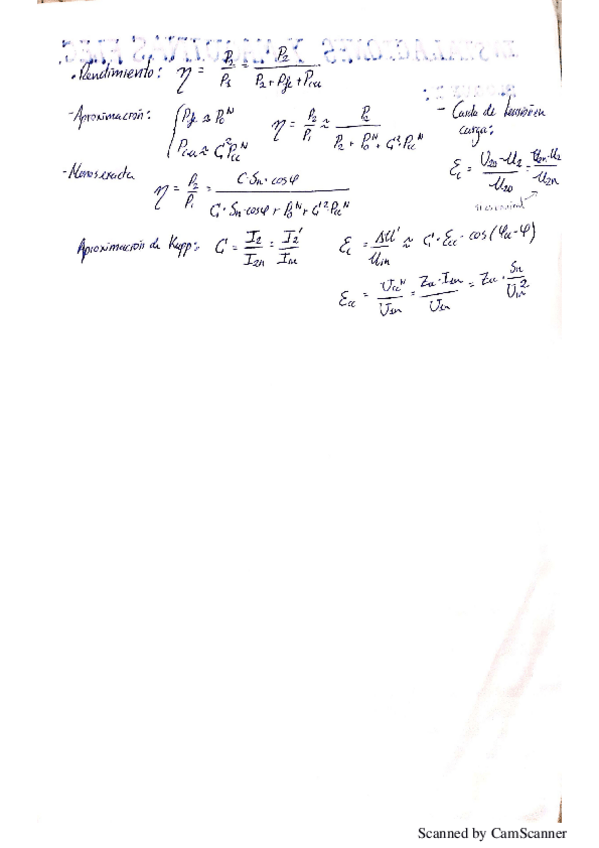 · Rendimiento: η = P₂/P₁ = P₂/(P₂ + Pfe + Pcu)
- Aproximación: { Pfe ≈ P₀ᴺ   η = P₂/P₁ ≈ P₂/(P₂ + P₀ᴺ + C²Pccᴺ)
Pcu ≈ C²Pccᴺ
- Caída de tensión en
carga:
εc = (U₂₀ - U₂)/U₂₀ = (U₂n - U₂)/U₂n
- Menos exacta
η = P₂/P₁ = C·Sn·cosφ/(C·Sn·cosφ + P₀ᴺ + C²Pccᴺ)
Aproximación de Kapp: C = I₂/I₂n = I₂'/I₁n   εc = ΔU'/U₁n ≈ C·εcc·cos(φcc-φ)
εcc = Uccᴺ/U₁n = Zcc·I₁n/U₁n = Zcc·Sn/U₁n²
Scanned by CamScanner